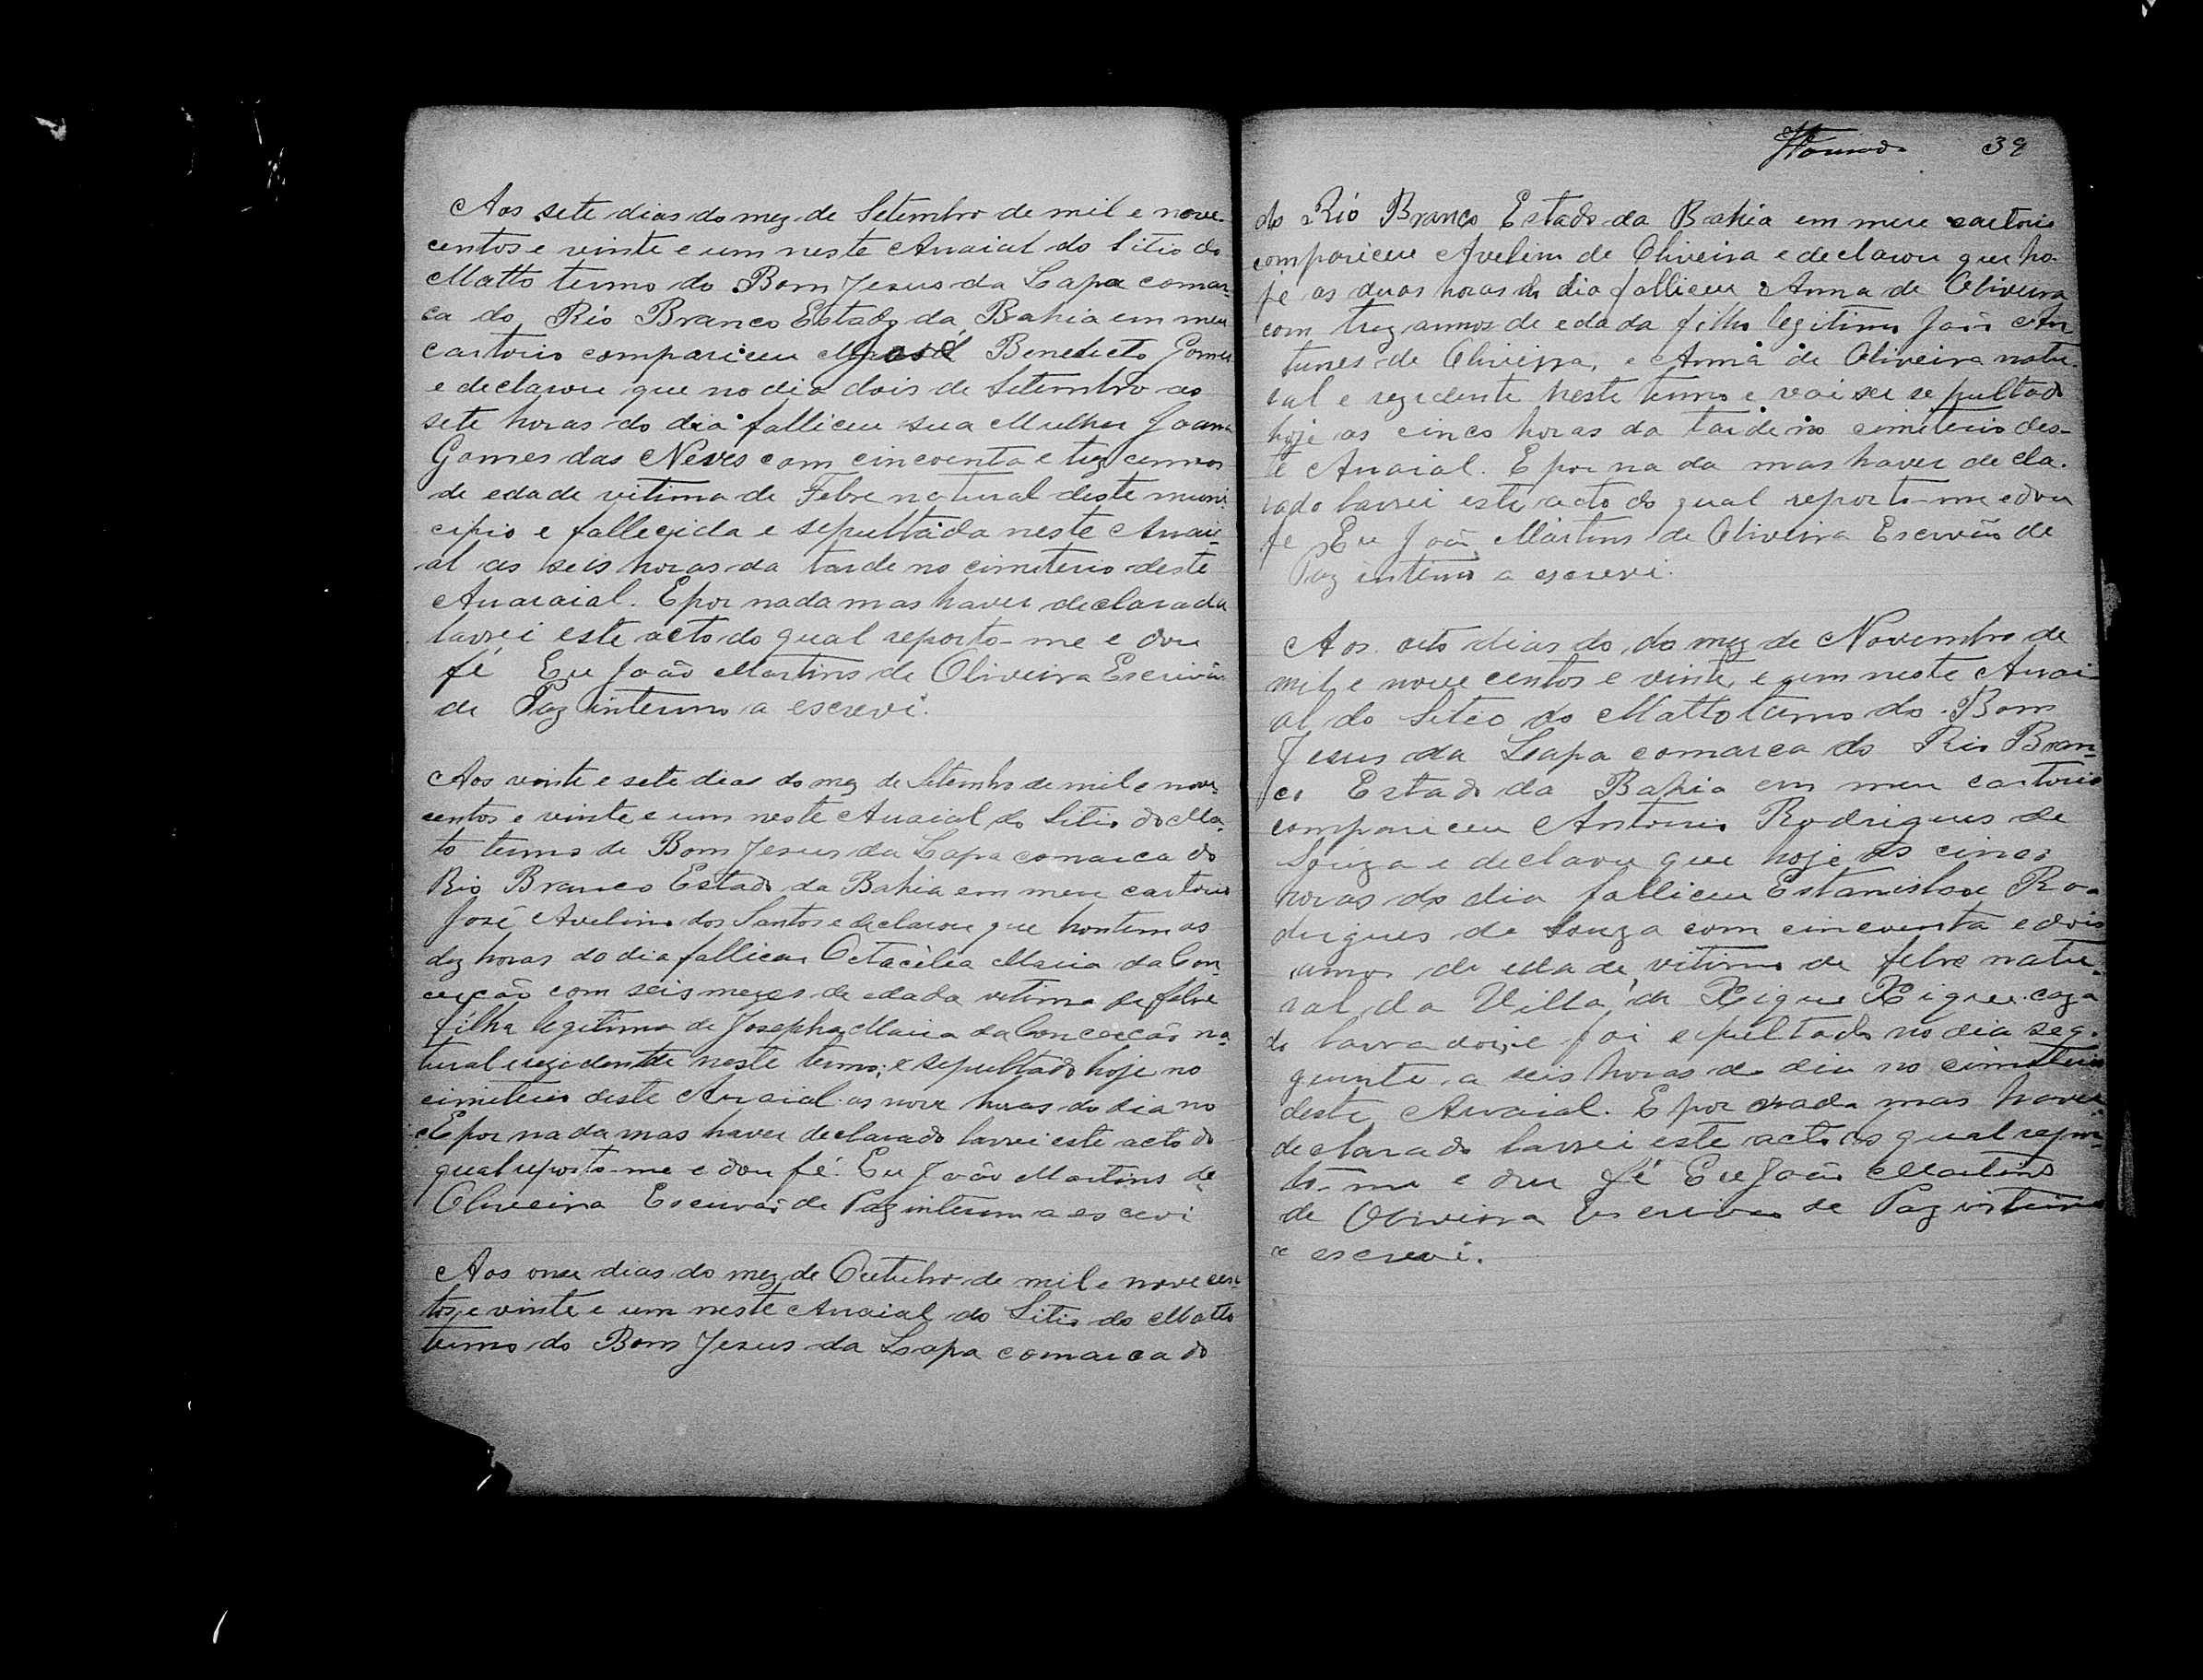 Aos sete dias do mez de Setembro de mil e nove
centos e vinte e um neste Arraial do Sitio do
Matto termo do Bom Jesus da Lapa comar-
ca do Rio Branco Estado da Bahia em meu
cartorio compariceu José Benedicto Gomes
e declarou que no dia dois de Setembro as
sete horas do dia falliceu sua Mulher Joana
Gomes das Neves com cincoenta e trez annos
de edade vitima de Febre natural deste muni-
cipio e fallecida e sepultada neste Arrai-
al as seis horas da tarde no cimiterio deste
Araraial. E por nada mas haver declarado
lavrei este acto do qual reporto-me e dou
fé Eu João Martins de Oliveira Escrivão
de Paz interino a escrevi.
Aos vinte e sete dias do mez de Setembro de mil e nove
centos e vinte e um neste Arraial do Sitio do Ma-
to termo de Bom Jesus da Lapa comarca do
Rio Branco Estado da Bahia em meu cartorio
José Avelino dos Santos e declarou que hontem as
dez horas do dia falliceu Octacilia Maria da Con-
ceição com seis mezes de edada vitima de febre
filha legitima de Josepha Maria da Conceição na-
tural e rezidente neste termo; e sepultado hoje no
cimiterio deste Arraial as nove horas do dia no
E por nada mas haver declarado lavrei este acto do
qual reporto-me e dou fé. Eu João Martins de
Oliveira Escrivão de Paz interino a escevi
Aos onze dias do mez de Outubro de mil e nove cen-
tos e vinte e um neste Arraial do Sitio do Matto
termo do Bom Jesus da Lapa comarca do
39
do Rio Branco Estado da Bahia em meu cartorio
compariceu Avelino de Oliveira e declarou que ho-
je as duas horas do dia falliceu Anna de Oliveira
com trez annos de edada filho legitimo João An
tunes de Oliveira, e Anna de Oliveira natu-
ral e rezidente neste termo e vai ser sepultado
hoje as cinco horas da tarde no cimiterio des-
te Arraial. E por nada mas haver decla-
rado lavrei este acto do qual reporto-me e dou
fe Eu João Martins de Oliveira Escrivão de
Paz interino a escrevi.
Aos oito dias do do mez de Novembro de
mil e nove centos e vinte e um neste Arrai-
al do Sitio do Matto termo do Bom
Jesus da Lapa comarca do Rio Bran-
co Estado da Bahia em meu cartorio
compariceu Antonio Rodrigues de
Souza e declarou que hoje as cinco
horas do dia falliceu Estanislau Ro-
drigues de Souza com cincoenta e dois
annos de edade vitima de febre natu-
ral da Villa de Xique Xique caza
do lavrador, e foi sepultado no dia seg-
guinte, a seis horas do dia no cimiterio
deste Arraial. E por nada mas haver
declarado lavrei este acto do qual repor-
to-me e dou fé Eu João Martins
de Oliveira Escrivão de Paz interino
a escrevi.